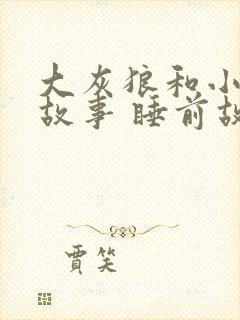 大灰狼和小
故事 睡前故
賈笑